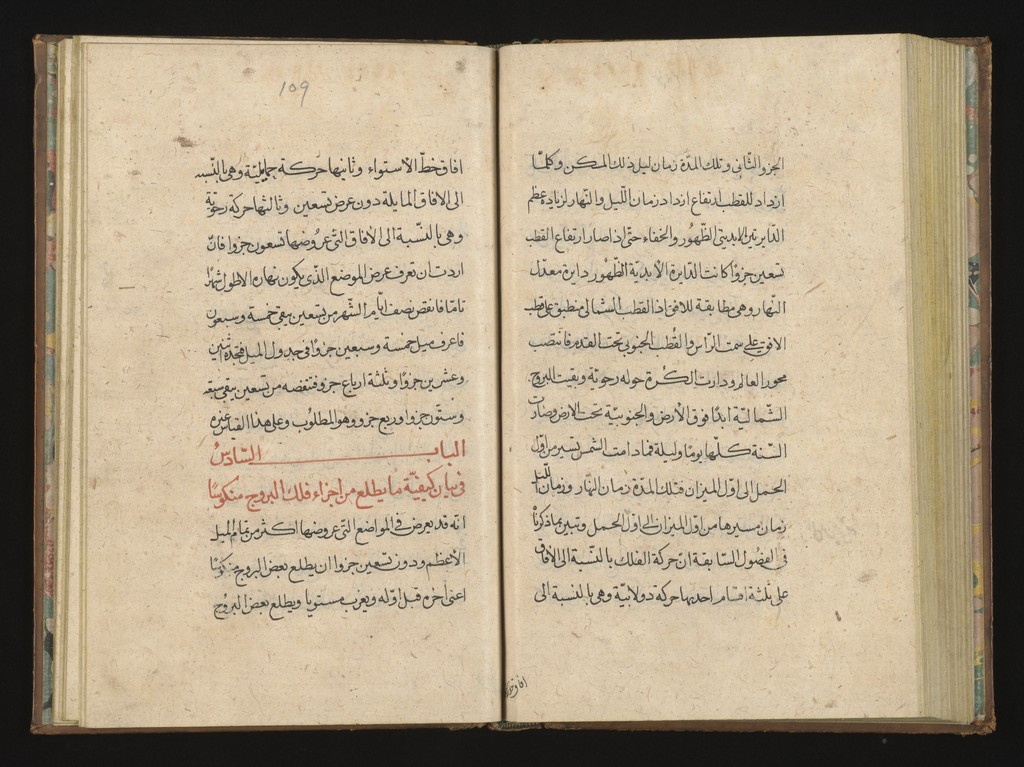 الجزو الثاني وتلك المدّة زمان ليل ذلك المسكن وكلمّا
ازداد للقطب ارتفاع ازداد زمان اللّيل والنّهار لزيادة عظم
الدّايرتين الابديتي الظّهُور والخفاء حتّي اذا صار ارتفاع القطب
تسعين جزوًا كانت الدّايرة الأبديّة الظّهُور دايرة معدّل
النّهار وهي مطابقة للافق اذ القطب الشمالي منطبق على قطب
الافق علي سمت الرّاس والقطب الجنوبي تحت القدم فانتصب
محور العالم ودارت الكُرة حوله رحويّة وبقيت البروج
الشّماليّة ابدًا فوق الأرض والجنوبيّة تحت الارض وصارت
السّنة كلّها يومًا وليلة فما دامت الشّمس تسير من اوّل
الحمل الى اوّل الميزان فتلك المدّة زمان النّهار وزمان اللّيل
زمان مسيرها من اوّل الميزان الى اوّل الحمل وتبين بما ذكرناه
في الفصُول السّابقة انّ حركة الفلك بالنّسبة الى الآفاق
على ثلثة اقسام احديها حركة دولابيّة وهي بالنسبة الى
افاق خط
109
افاق خطّ الأستواء وثانيها حركة حمايليّة وهي بالنّسبة
الى الافاق المايلة دون عرض تسعين وثالثها حركة رحويّة
وهي بالنّسبة الى الأفاق التّي عرُوضها تسعون جزوا فان
اردت ان تعرف عرض الموضع الّذي يكون نهاره الاطول شهرًا
تامّا فانقص نصف ايّام الشّهر من تسعين يبقي خمسة وسبعون
فاعرف ميل خمسة وسبعين جزوًا في جدول الميل فتجده اثنين
وعشرين جزوًا وثلثة ارباع جزو فتنقصه من تسعين يبقي سبعة
وستّون جزوا وربع جزو وهو المطلُوب وعلي هذا القياس غيره
الباب السّادسُ
في بيان كيفيّة ما يطلع من اجزاء فلك البروج منكوسًا
انّه قد يعرض في المواضع التّي عروضها اكثر من تمام الميل
الأعظم ودون تسعين جزوا ان يطلع بعض البروج منكوسًا
اعني اخره قبل اوّله ويغرب مستويا ويطلع بعض البروج